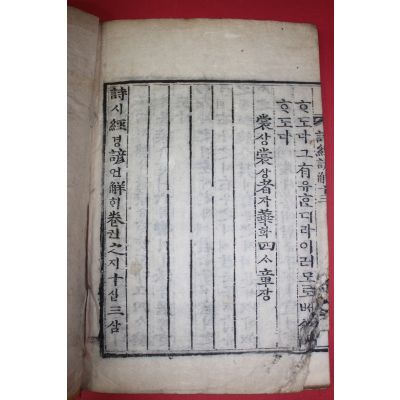 詩經諺解
ᄒᆞ도다그有유ᄒᆞᆫ디라이러모로ᄡᅥ
ᄒᆞ도다
裳샹裳샹者쟈華화四ᄉᆞ章쟝
詩시經경諺언解ᄒᆡ卷권之지十십三삼